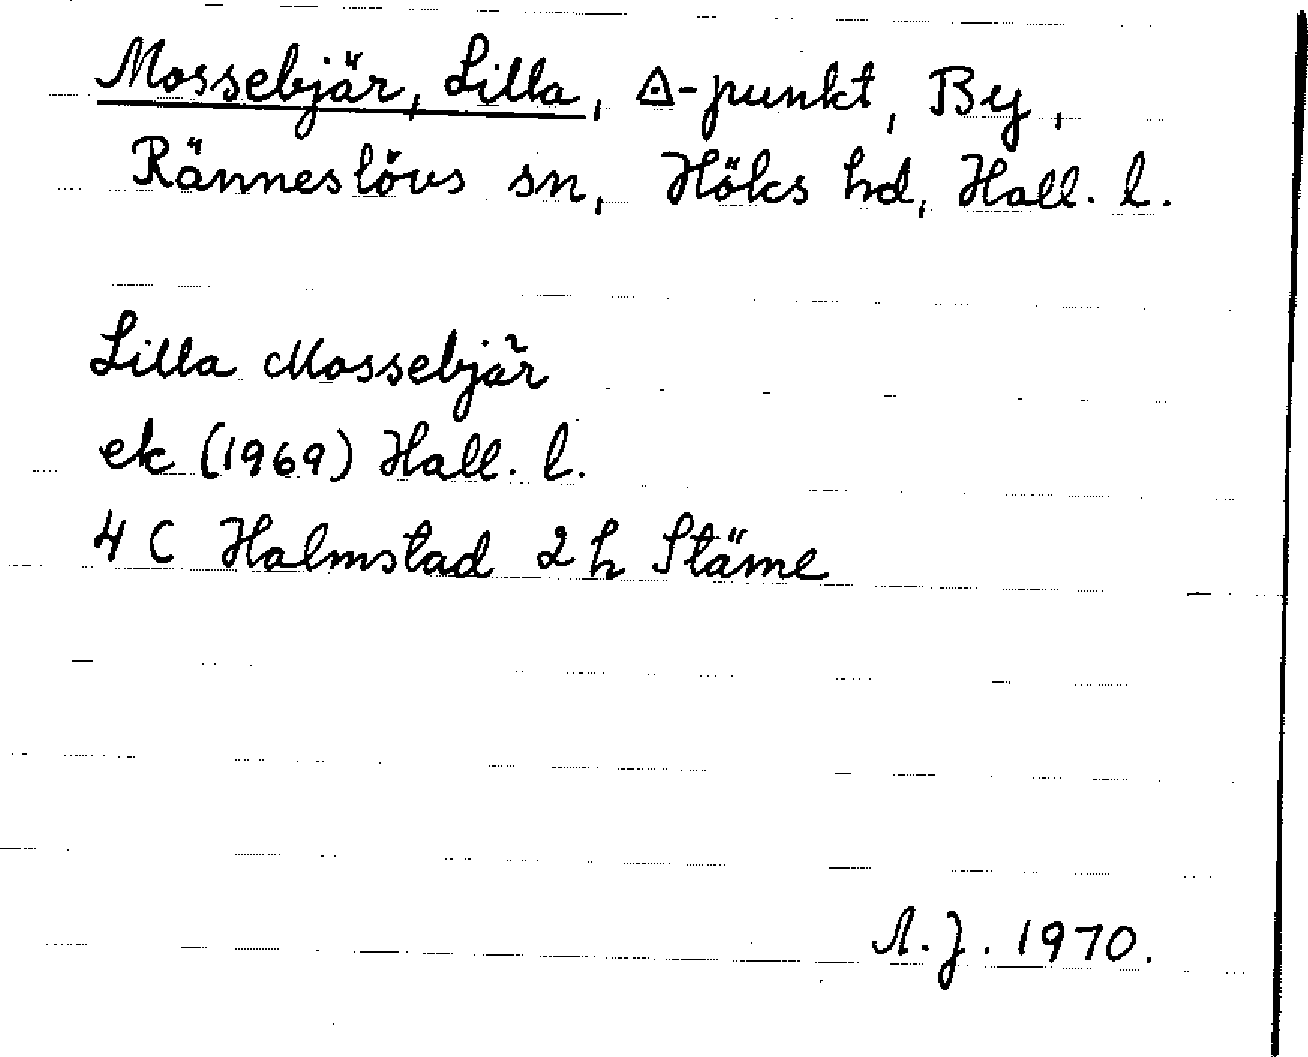 Mossebjär, Lilla, ◬-punkt, By,
Ränneslövs sn, Höks hd, Hall. l.
Lilla Mossebjär
ek (1969) Hall. l.
4 C Halmstad 2 h Stäme
A.J. 1970.